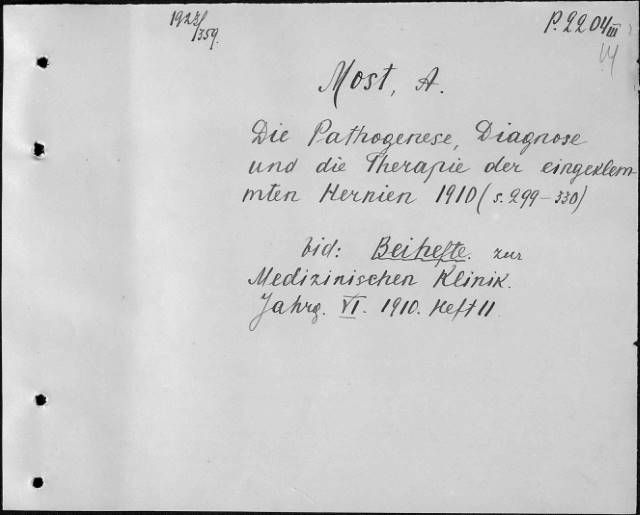 1923/
1359.
P.2204 III
Most, A.
Die Pathogenese, Diagnose
und die Therapie der eingeklem-
mten Hernien 1910 (s. 299-330)
bid: Beihefte. zur
Medizinischen Klinik.
Jahrg. VI. 1910. Heft 11